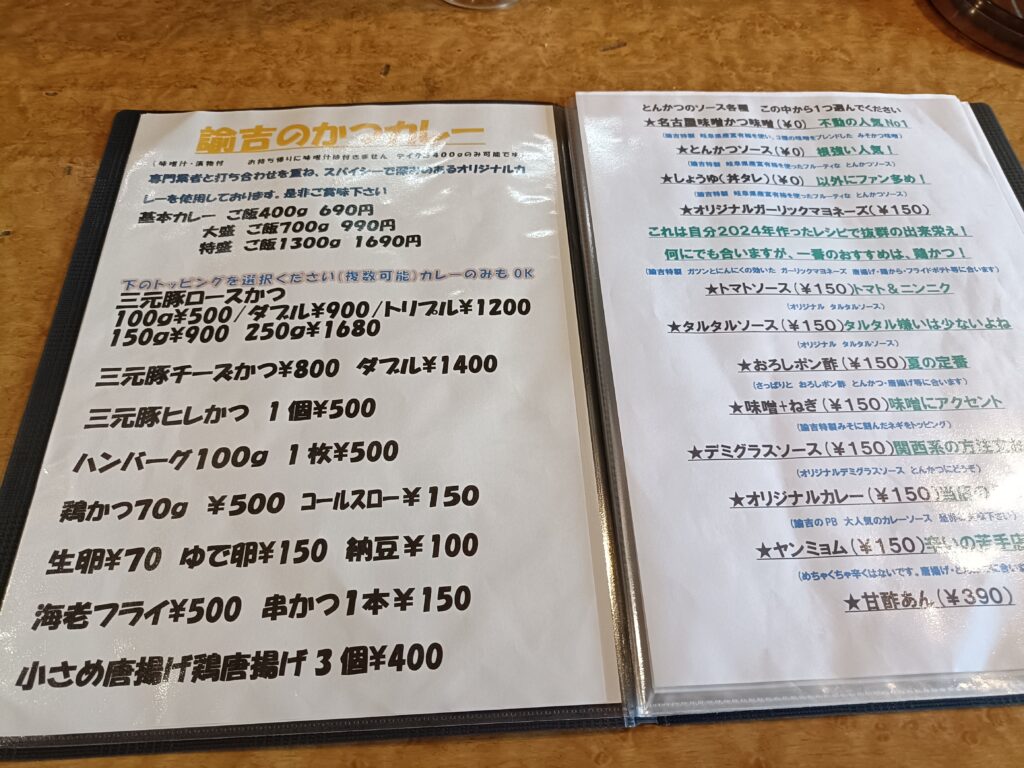 諭吉のかつカレー
(味噌汁・漬物付 お持ち帰りに味噌汁は付きません テイクは400gのみ可能です)
専門業者と打ち合わせを重ね、スパイシーで深みのあるオリジナルカ
レーを使用しております。是非ご賞味下さい
基本カレー ご飯400g 690円
大盛 ご飯700g 990円
特盛 ご飯1300g 1690円
下のトッピングを選択ください(複数可能)カレーのみもOK
三元豚ロースかつ
100g¥500/ダブル¥900/トリプル¥1200
150g¥900 250g¥1680
三元豚チーズかつ¥800 ダブル¥1400
三元豚ヒレかつ 1個¥500
ハンバーグ100g 1枚¥500
鶏かつ70g ¥500 コールスロー¥150
生卵¥70 ゆで卵¥150 納豆¥100
海老フライ¥500 串かつ1本¥150
小さめ唐揚げ鶏唐揚げ3個¥400
とんかつのソース各種 この中から1つ選んでください
★名古屋味噌かつ味噌(¥0) 不動の人気No1
(諭吉特製 岐阜県産富有柿を使い、3種の味噌をブレンドした みそかつ味噌)
★とんかつソース(¥0) 根強い人気!
(諭吉特製 岐阜県産富有柿を使ったフルーティな とんかつソース)
★しょうゆ(丼タレ)(¥0) 以外にファン多め!
(諭吉特製 岐阜県産富有柿を使ったフルーティな とんかつソース)
★オリジナルガーリックマヨネーズ(¥150)
これは自分2024年作ったレシピで抜群の出来栄え!
何にでも合いますが、一番のおすすめは、鶏かつ!
(諭吉特製 ガツンとにんにくの効いた ガーリックマヨネーズ 唐揚げ・鶏から・フライドポテト等に合います)
★トマトソース(¥150)トマト&ニンニク
(オリジナル タルタルソース)
★タルタルソース(¥150)タルタル嫌いは少ないよね
(オリジナル タルタルソース)
★おろしポン酢(¥150)夏の定番
(さっぱりと おろしポン酢 とんかつ・唐揚げに合います)
★味噌+ねぎ(¥150)味噌にアクセント
(諭吉特製みそに刻んだネギをトッピング)
★デミグラスソース(¥150)関西系の方注文
(オリジナルデミグラスソース とんかつにどうぞ)
★オリジナルカレー(¥150)当店の
(諭吉のPB 大人気のカレーソース 是非 下さい)
★ヤンニョム(¥150)辛いの苦手店
(めちゃくちゃ辛くはないです。唐揚げ・とんかつに合い
★甘酢あん(¥390)